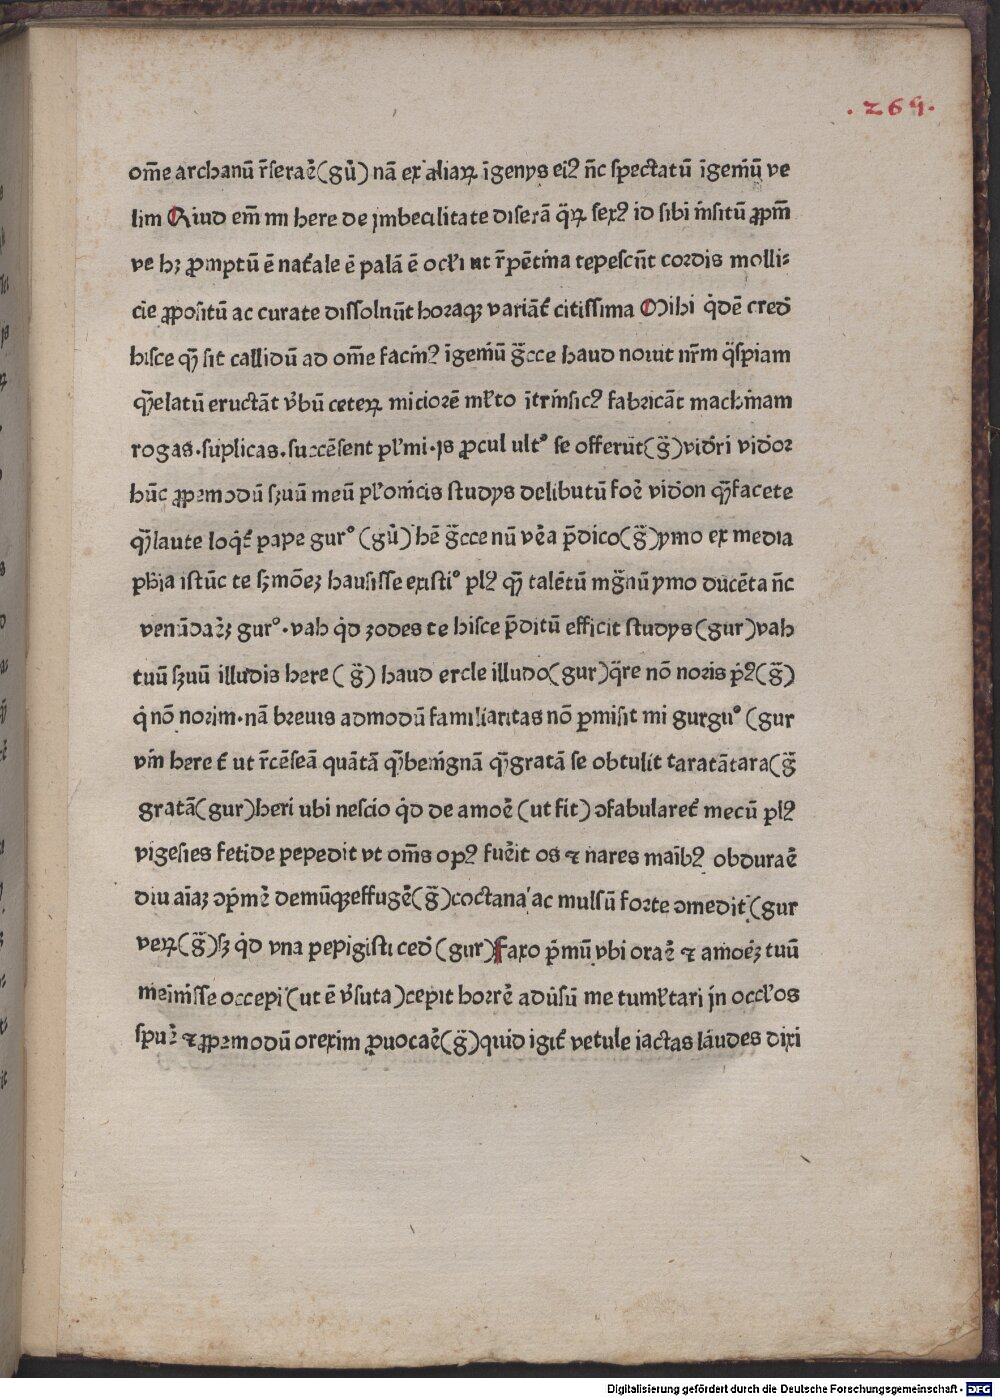 . 265 .
om̄e archanū r̄seraē(gū) nā ex aliaꝝ īgenys eiꝰ n̄c spectatū īgeniū ve
lim Quid em̄ mi here de imbecilitate diserā q̄ꝝ sexꝰ id sibi insitū ꝓpm̄
ve hꝫ promptū ē nat̄ale ē palā ē ocl̄i ut r̄pētina tepescūt cordis molli⸗
cīe ꝓpositū ac curate dissolnūt horaqꝫ variāt̄ citissima Mihi q̇dē cred̄
hisce qꝫ̄ sit callidū ad om̄e facinꝰ īgeniū ḡcce haud noiut nr̄m q̄spiam
qꝫ̄elatū eructāt v̄bū ceteꝝ miciorē ml̄to ītrinsicꝰ fabricāt machinam
rogas.suplicas.succēsent pl̄mi.is ꝓcul ultꝰ se offerūt(ḡ)vid̄ri vid̄or
hūc ꝓpemodū sꝫuū meū pl̄omīcis studys delibutū foē vid̄on qꝫ̄facete
qꝫ̄laute loq̇t̄ pape gurꝰ (gū) hē ḡcce nū vēa p̄dico(ḡ)ymo ex media
ph̄ia istūc te sꝫmōeꝫ hausisse existiꝰ plꝰ qꝫ̄ talētū mḡnū ymo ducēta n̄c
venūdaēꝫ gurꝰ.vah q̇d ꝫodes te hisce p̄ditū efficit studys(gur)vah
tuū sꝫuū illudis here (ḡ) haud ercle illudo(gur)q̄re nō noris ṗꝰ(ḡ)
q̇ nō norim.nā breuis admodū familiaritas nō ꝑmisit mi gurguꝰ (gur
vin here t̄ ut r̄cēseā quātā qꝫ̄benignā qꝫ̄gratā se obtulit taratātara(ḡ
gratā(gur)heri ubi nescio q̇d de amoē (ut fit) ꝯfabularet̄ mecū plꝰ
vigesies fetide pepedit vt om̄s opꝰ fuēit os ⁊ nares maībꝰ obduraē
diu aīaꝫ ꝯp̄mē demūqꝫeffugē(ḡ)coctana ac mulsū forte ꝯmedit̄(gur
veꝝ(ḡ)sꝫ q̇d vna pepigisti ced̄(gur)Faxo p̄mū vbi oraē ⁊ amoēꝫ tuū
meīnisse occepi (ut ē v̄suta)cepit horrē adūsū me tuml̄tari in occl̄os
spuē ⁊ ꝓpemodū orexim ꝓuocaē(ḡ)quid igit̄ vetule iactas laudes dixi
Digitalisierung gefördert durch die Deutsche Forschungsgemeinschaft - DFG